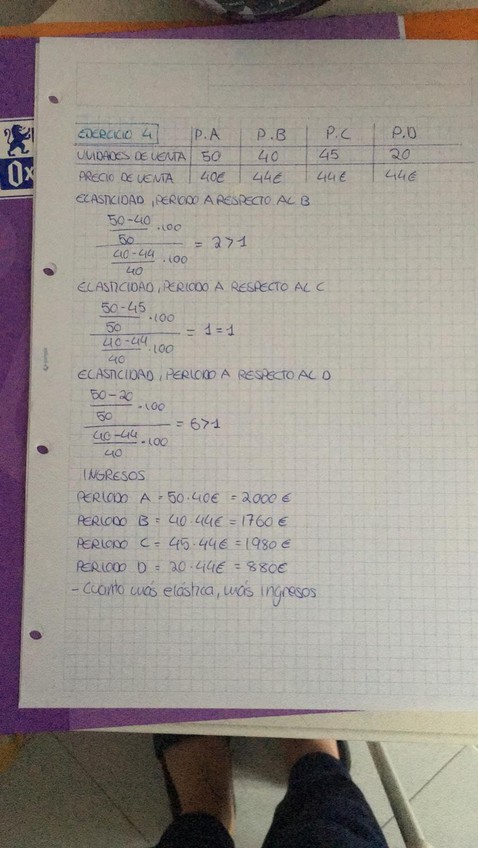 Ox
EJERCICIO 4 P.A P.B P.C P.D
UNIDADES DE VENTA 50 40 45 20
PRECIO DE VENTA 40€ 44€ 44€ 44€
ELASTICIDAD, PERIODO A RESPECTO AL B
50-40
50 ·100
40-44
40 ·100
= 2>1
ELASTICIDAD, PERIODO A RESPECTO AL C
50-45
50 ·100
40-44
40 ·100
= 1=1
ELASTICIDAD, PERIODO A RESPECTO AL D
50-20
50 ·100
40-44
40 ·100
= 6>1
INGRESOS
PERIODO A = 50·40€ = 2000 €
PERIODO B = 40·44€ = 1760 €
PERIODO C = 45·44€ = 1980 €
PERIODO D = 20·44€ = 880€
- Cuanto más elástica, más ingresos